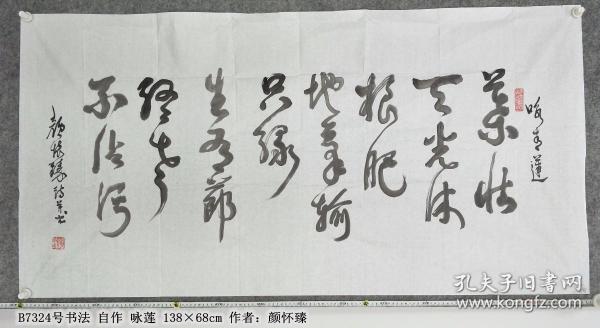 咏青蓮
葉壮
天光沐
根肥
地氣輸
只緣
生有節
不沾污
颜怀臻诗并书
B7324号书法 自作 咏莲 138×68cm 作者：颜怀臻
孔夫子旧书网
www.kongfz.com